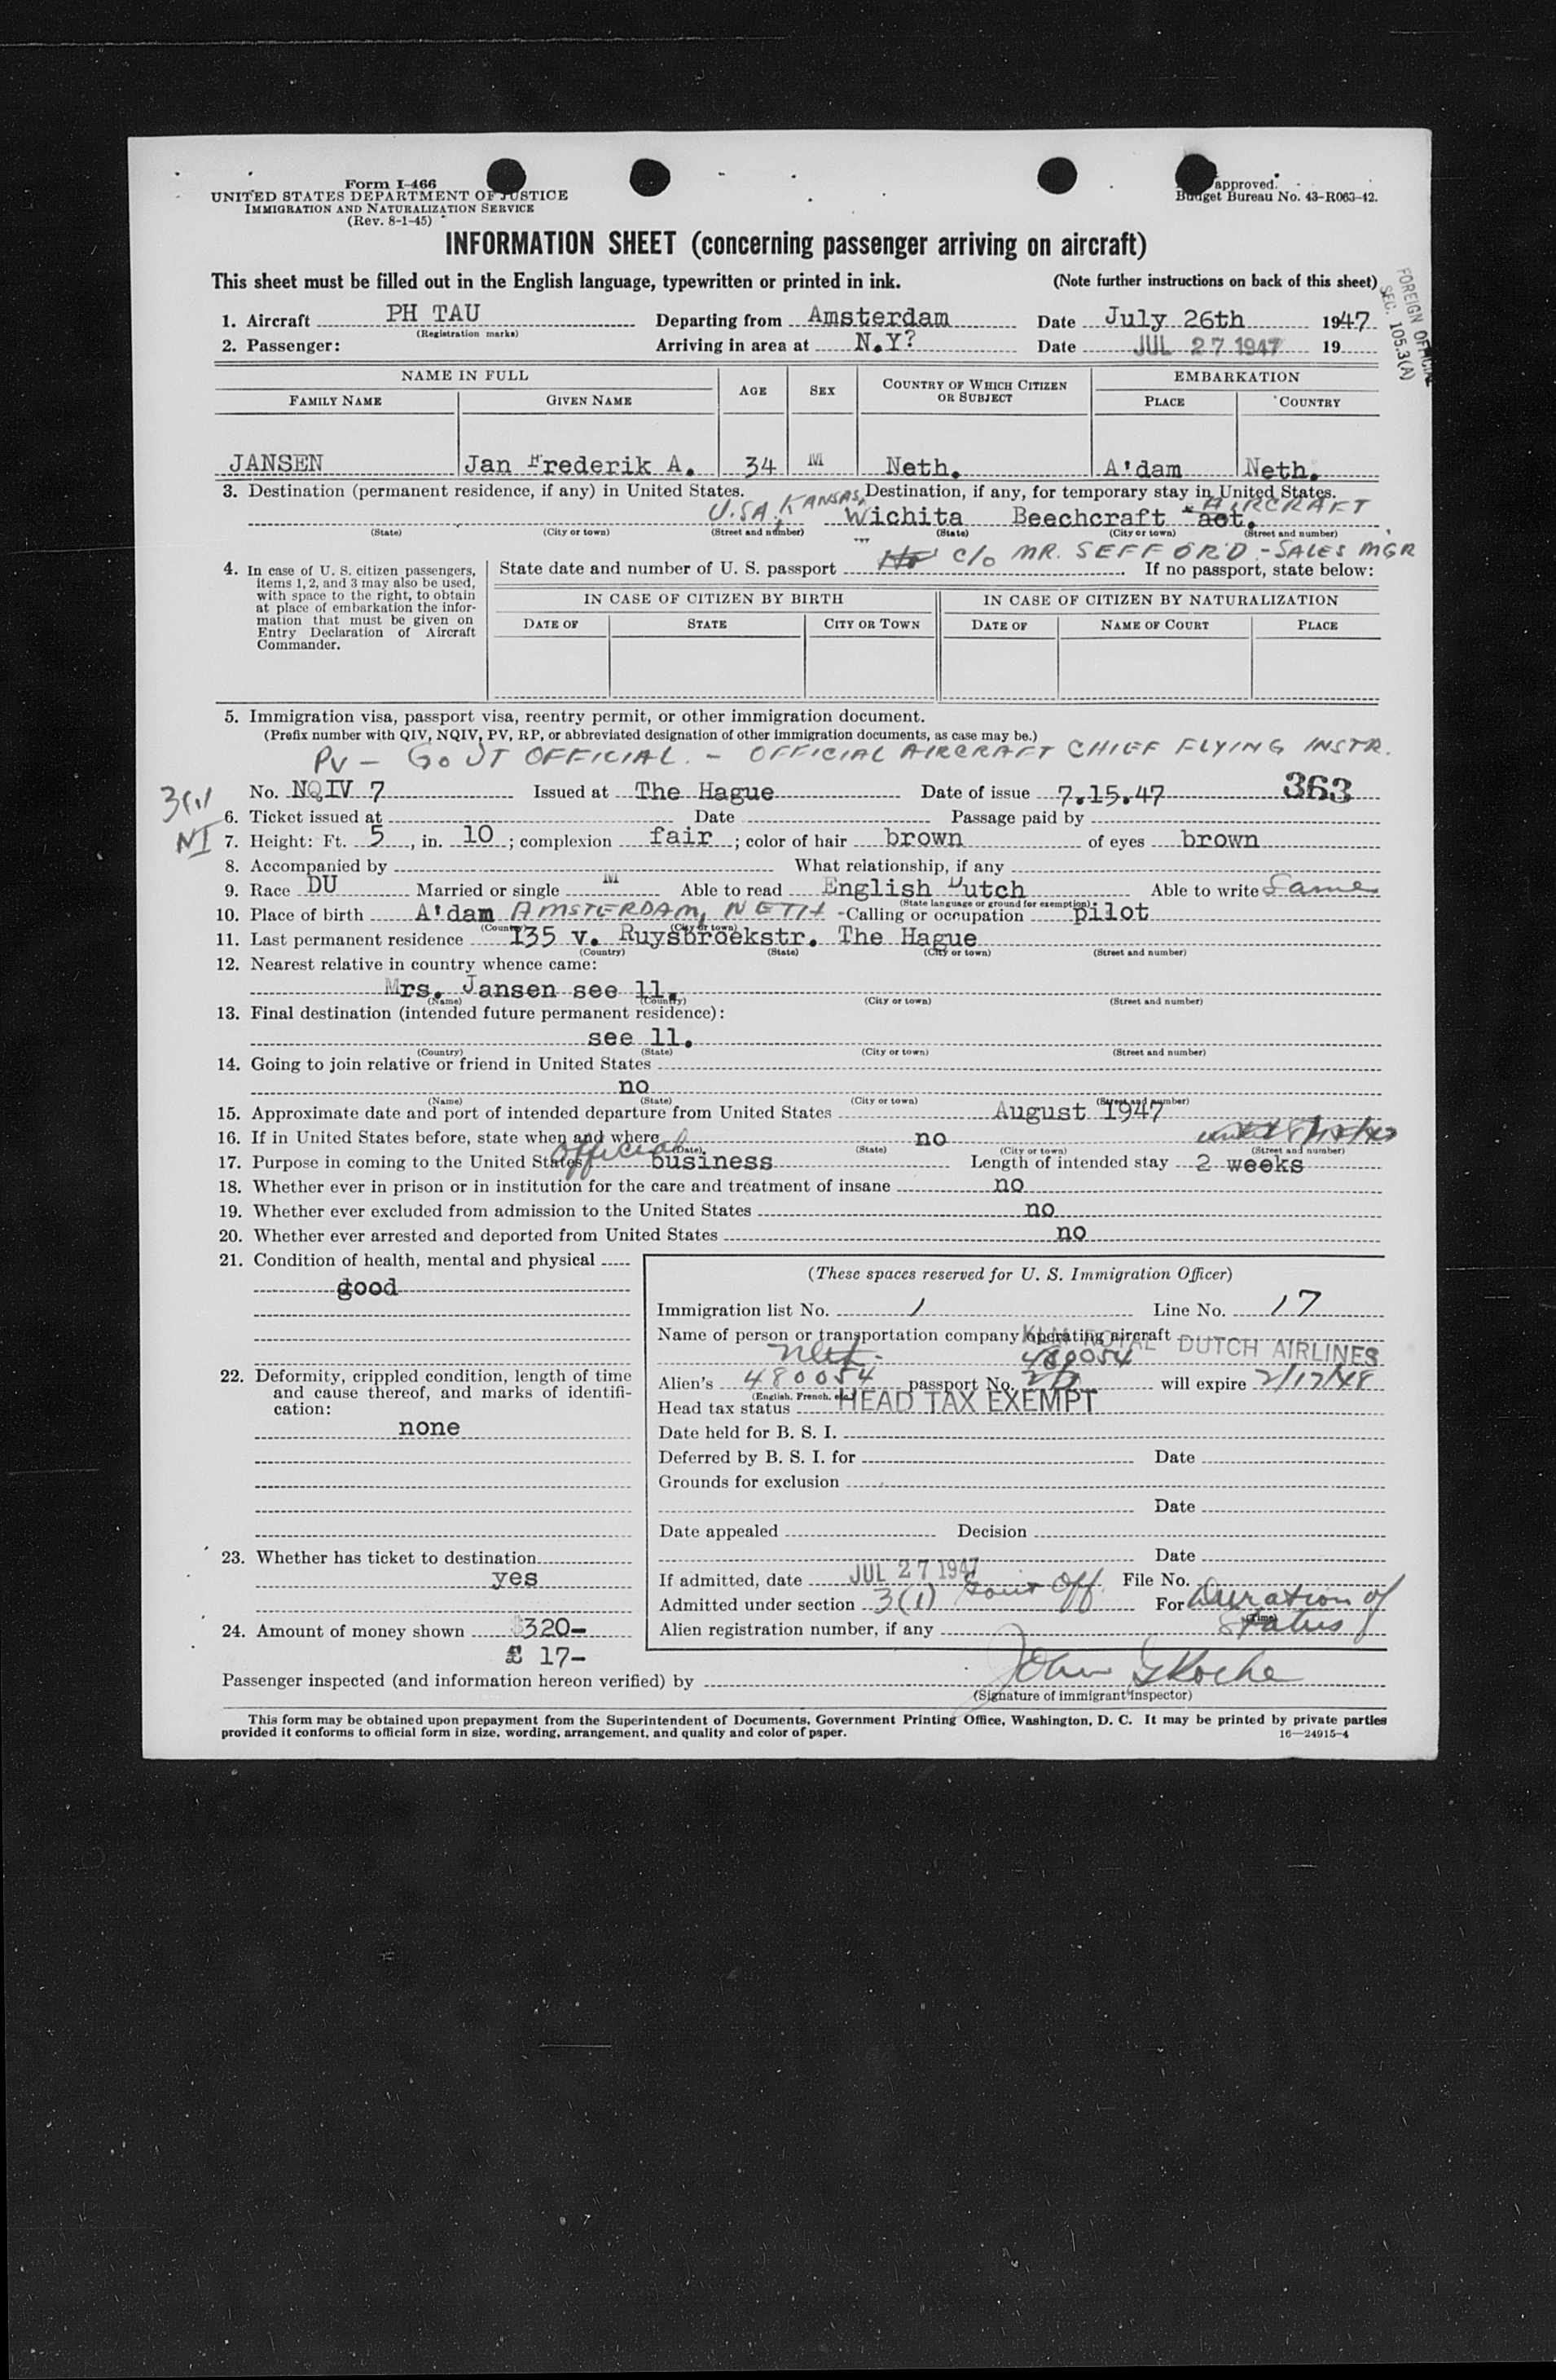 Form I-466
UNITED STATES DEPARTMENT OF JUSTICE
IMMIGRATION AND NATURALIZATION SERVICE
(Rev. 8-1-45)
approved.
Budget Bureau No. 43-R063-42.
INFORMATION SHEET (concerning passenger arriving on aircraft)
This sheet must be filled out in the English language, typewritten or printed in ink. (Note further instructions on back of this sheet)
FOREIGN OFFICIAL
SEC. 105.3(A)
1. Aircraft PH TAU Departing from Amsterdam Date July 26th 1947
(Registration marks)
2. Passenger: Arriving in area at N.Y? Date JUL 27 1947 19
NAME IN FULL AGE SEX COUNTRY OF WHICH CITIZEN OR SUBJECT EMBARKATION
FAMILY NAME GIVEN NAME PLACE COUNTRY
JANSEN Jan Frederik A. 34 M Neth. A'dam Neth.
3. Destination (permanent residence, if any) in United States. Destination, if any, for temporary stay in United States.
U.S.A. KANSAS, Wichita Beechcraft act. AIRCRAFT
(State) (City or town) (Street and number) (State) (City or town) (Street and number)
No c/o MR. SEFFORD - SALES MGR
4. In case of U. S. citizen passengers, items 1, 2, and 3 may also be used, with space to the right, to obtain at place of embarkation the information that must be given on Entry Declaration of Aircraft Commander.
State date and number of U. S. passport If no passport, state below:
IN CASE OF CITIZEN BY BIRTH IN CASE OF CITIZEN BY NATURALIZATION
DATE OF STATE CITY OR TOWN DATE OF NAME OF COURT PLACE
5. Immigration visa, passport visa, reentry permit, or other immigration document.
(Prefix number with QIV, NQIV, PV, RP, or abbreviated designation of other immigration documents, as case may be.)
PV - GOVT OFFICIAL. - OFFICIAL AIRCRAFT CHIEF FLYING INSTR.
3(1) No. NQIV 7 Issued at The Hague Date of issue 7.15.47 363
NI
6. Ticket issued at Date Passage paid by
7. Height: Ft. 5, in. 10; complexion fair; color of hair brown of eyes brown
8. Accompanied by What relationship, if any
9. Race DU Married or single M Able to read English Dutch Able to write Same
(State language or ground for exemption)
10. Place of birth A'dam AMSTERDAM, NETH - Calling or occupation pilot
(Country) (City or town)
11. Last permanent residence 135 v. Ruysbroekstr. The Hague
(Country) (State) (City or town) (Street and number)
12. Nearest relative in country whence came:
Mrs. Jansen see 11.
(Name) (Country) (City or town) (Street and number)
13. Final destination (intended future permanent residence):
see 11.
(Country) (State) (City or town) (Street and number)
14. Going to join relative or friend in United States
no
(Name) (State) (City or town) (Street and number)
15. Approximate date and port of intended departure from United States August 1947
16. If in United States before, state when and where no
(Date) (State) (City or town) (Street and number)
17. Purpose in coming to the United States official business Length of intended stay 2 weeks
18. Whether ever in prison or in institution for the care and treatment of insane no
19. Whether ever excluded from admission to the United States no
20. Whether ever arrested and deported from United States no
21. Condition of health, mental and physical
good
22. Deformity, crippled condition, length of time and cause thereof, and marks of identification:
none
23. Whether has ticket to destination
yes
24. Amount of money shown $320-
£ 17-
(These spaces reserved for U. S. Immigration Officer)
Immigration list No. 1 Line No. 17
Name of person or transportation company operating aircraft KLM ROYAL DUTCH AIRLINES
Neth. 480054
Alien's 480054 passport No. will expire 2/17/48
(English, French, etc.)
Head tax status HEAD TAX EXEMPT
Date held for B. S. I.
Deferred by B. S. I. for Date
Grounds for exclusion
Date
Date appealed Decision
Date
If admitted, date JUL 27 1947 File No.
Admitted under section 3(1) Govt Off. For Duration of Status
(Time)
Alien registration number, if any
Passenger inspected (and information hereon verified) by John G Roche
(Signature of immigrant inspector)
This form may be obtained upon prepayment from the Superintendent of Documents, Government Printing Office, Washington, D. C. It may be printed by private parties
provided it conforms to official form in size, wording, arrangement, and quality and color of paper. 16—24915-4